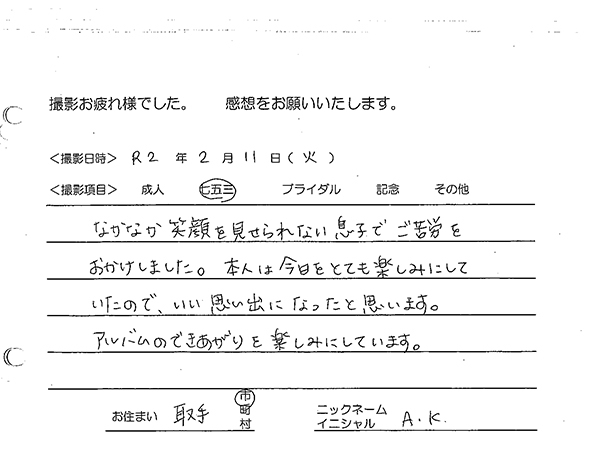 撮影お疲れ様でした。　感想をお願いいたします。
＜撮影日時＞ R2 年 2 月 11 日（火）
＜撮影項目＞ 成人 七五三 ブライダル 記念 その他
なかなか笑顔を見せられない息子でご苦労を
おかけしました。本人は今日をとても楽しみにして
いたので、いい思い出になったと思います。
アルバムのできあがりを楽しみにしています。
お住まい 取手 市 町 村 ニックネーム イニシャル A.K.